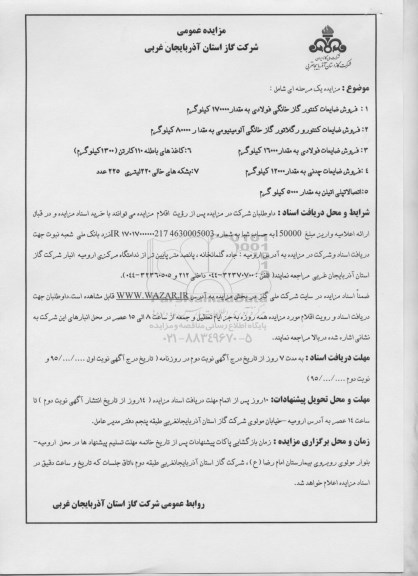 مزایده عمومی
شرکت گاز استان آذربایجان غربی
موضوع : مزایده یک مرحله ای شامل :
۱ : فروش ضایعات کنتور گاز خانگی فولادی به مقدار ۱۷۰۰۰۰ کیلوگرم
۲: فروش ضایعات کنتور و رگلاتور گاز خانگی آلومینیومی به مقدار ۸۰۰۰۰ کیلوگرم
۳ :فروش ضایعات فولادی به مقدار ۱۶۰۰۰ کیلوگرم ۶:کاغذ های باطله ۱۱۰کارتن (۱۳۰۰کیلوگرم)
۴ :فروش ضایعات چدنی به مقدار ۱۲۰۰۰ کیلوگرم ۷:بشکه های خالی ۲۲۰لیتری ۲۲۵ عدد
۵:اتصالات پلی اتیلن به مقدار ۵۰۰۰ کیلو گرم
شرایط و محل دریافت اسناد : داوطلبان شرکت در مزایده پس از رؤیت اقلام مزایده می توانند با خرید اسناد مزایده و در قبال
ارائه اعلامیه واریز مبلغ 150000 به حساب شبا به شماره نزد بانک ملی شعبه نبوت جهت
دریافت اسناد وشرکت در مزایده به آدرس ارومیه : جاده گلمانخانه ، پانصد متر پایین تر از ندامتگاه مرکزی ارومیه انبار شرکت گاز
استان آذربایجان غربی مراجعه نمایند( تلفن :
ضمناً اسناد مزایده در سایت شرکت ملی گاز و بخش مزایده به آدرس WWW.WAZAR.IR قابل مشاهده است.داوطلبان جهت
دریافت اسناد و رویت اقلام مورد مزایده همه روزه به جز ایام تعطیل و جمعه از ساعت ۸ الی ۱۵ عصر در محل انبارهای این شرکت به
نشانی اشاره شده در بالا مراجعه نمایند.
پایگاه اطلاع رسانی مناقصه و مزایده
۰۲۱-۸۸۳۴۹۶۷۰-۵
مهلت دریافت اسناد : به مدت ۷ روز از تاریخ درج آگهی نوبت دوم در روزنامه ( تاریخ درج آگهی نوبت اون ..../..../۹۵ و
نوبت دوم ..../..../۹۵ )
مهلت و محل تحویل پیشنهادات: ۱۰روز پس از اتمام مهلت دریافت اسناد مزایده ( ۱۴روز از تاریخ انتشار آگهی نوبت دوم ) تا
ساعت ۱۴ عصر به آدرس ارومیه –خیابان مولوی شرکت گاز استان آذربایجانغربی طبقه پنجم دفتر مدیر عامل.
زمان و محل برگزاری مزایده : زمان بازگشایی پاکات پیشنهادات پس از تاریخ خاتمه مهلت تسلیم پیشنهاد ها در محل ارومیه-
بلوار مولوی روبروی بیمارستان امام رضا (ع) ، شرکت گاز استان آذربایجانغربی طبقه دوم ،اتاق جلسات که تاریخ و ساعت دقیق در
اسناد مزایده اعلام خواهد شد.
روابط عمومی شرکت گاز استان آذربایجان غربی